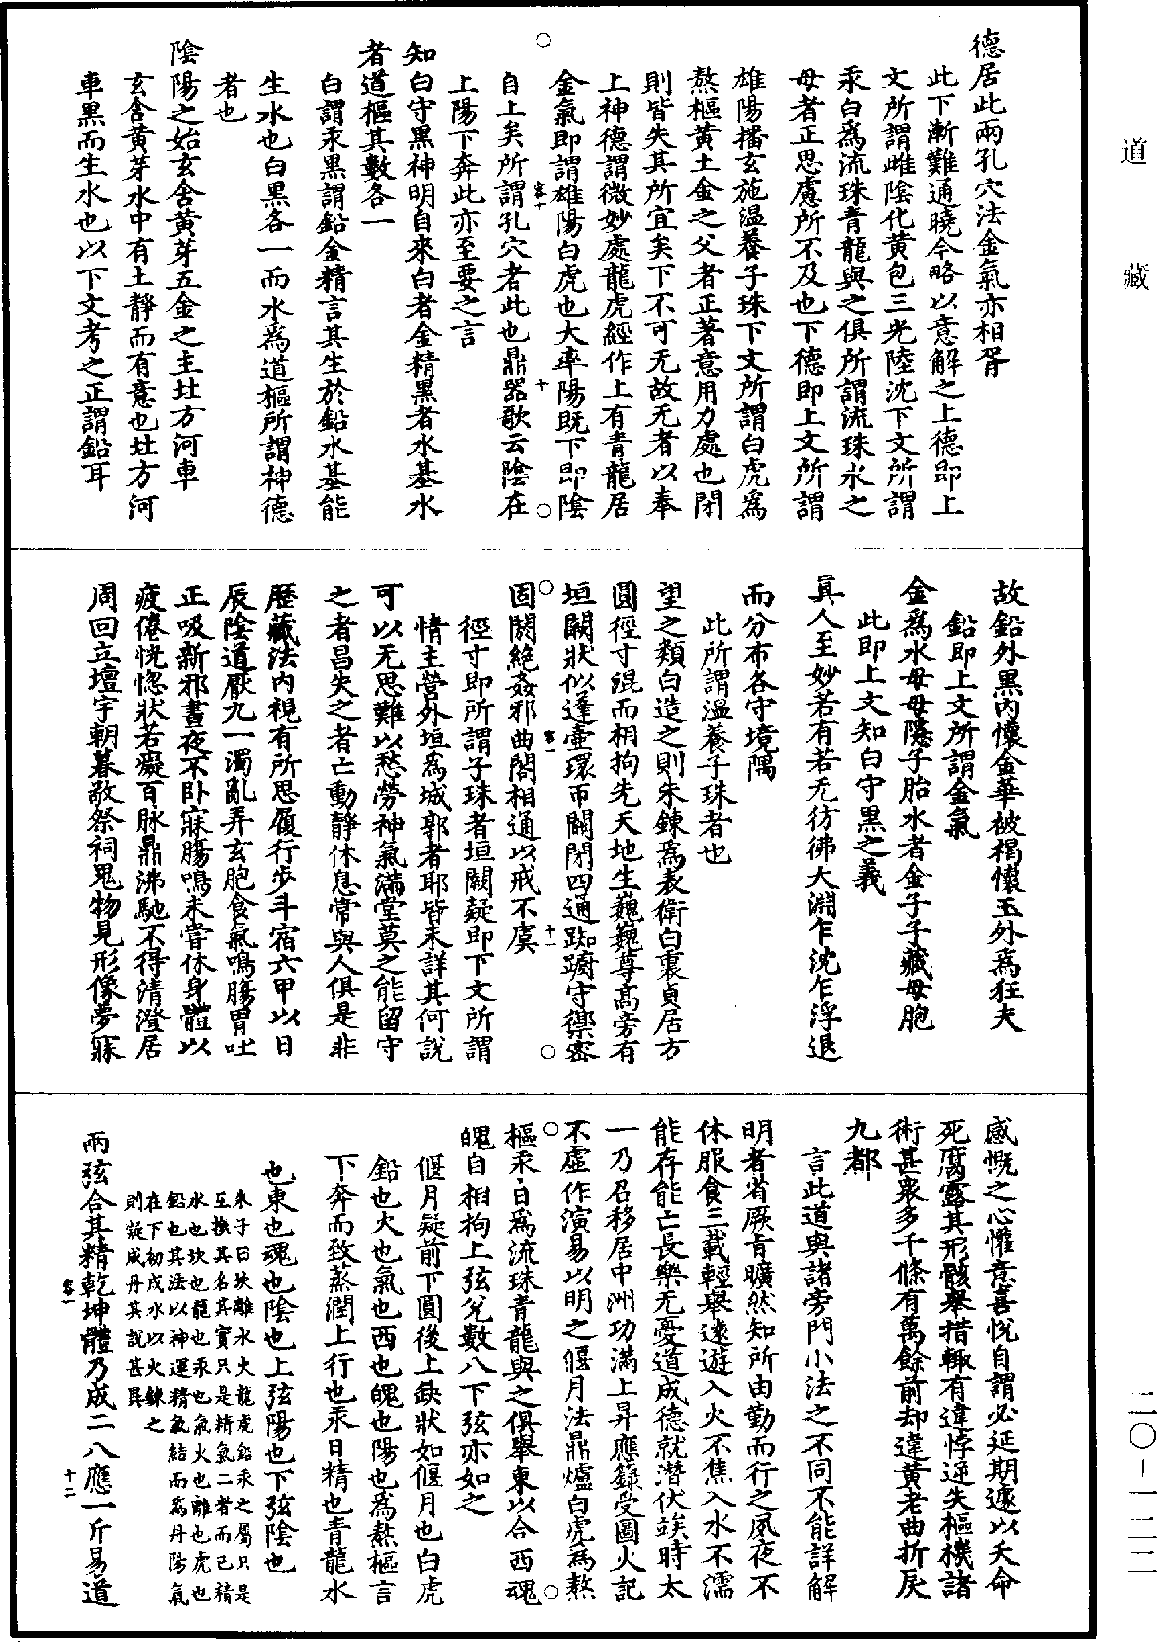 道藏
德居此兩孔穴法金氣亦相胥
此下漸難通曉今略以意解之上德即上
文所謂雌陰化黃包三光陸沈下文所謂
汞白為流珠青龍與之俱所謂流珠水之
母者正思慮所不及也下德即上文所謂
雄陽播玄施溫養子珠下文所謂白虎為
熬樞黃土金之父者正著意用力處也閉
則皆失其所宜矣下不可无故无者以奉
上神德謂微妙處龍虎經作上有青龍居
金氣即謂雄陽白虎也大率陽既下即陰
自上矣所謂孔穴者此也鼎器歌云陰在
上陽下奔此亦至要之言
知白守黑神明自來白者金精黑者水基水
者道樞其數各一
白謂汞黑謂鉛金精言其生於鉛水基能
生水也白黑各一而水為道樞所謂神德
者也
陰陽之始玄含黃芽五金之主北方河車
玄含黃芽水中有土靜而有意也北方河
車黑而生水也以下文考之正謂鉛耳
故鉛外黑內懷金華被褐懷玉外為狂夫
鉛即上文所謂金氣
金為水母母隱子胎水者金子子藏母胞
此即上文知白守黑之義
真人至妙若有若无彷彿大淵乍沈乍浮退
而分布各守境隅
此所謂溫養子珠者也
望之類白造之則朱鍊為表衛白裏貞居方
圓徑寸混而相拘先天地生巍巍尊高旁有
垣闕狀似蓬壺環帀關閉四通踟躕守禦密
固閼絕姦邪曲閣相通以戒不虞
徑寸即所謂子珠者垣闕疑即下文所謂
情主營外垣為城郭者耶皆未詳其何說
可以无思難以愁勞神氣滿堂莫之能留守
之者昌失之者亡動靜休息常與人俱是非
歷藏法內視有所思履行步斗宿六甲以日
辰陰道厭九一濁亂弄玄胞食氣鳴腸胃吐
正吸新邪晝夜不卧寐腸鳴未嘗休身體以
疲倦恍惚狀若癡百脉鼎沸馳不得清澄居
周回立壇宇朝暮敬祭祠鬼物見形像夢寐
感慨之心懽意喜悅自謂必延期遽以夭命
死腐露其形骸舉措輒有違悖逆失樞機諸
術甚衆多千條有萬餘前却違黃老曲折戾
九都
言此道與諸旁門小法之不同不能詳解
明者省厥旨曠然知所由勤而行之夙夜不
休服食三載輕舉遠遊入火不焦入水不濡
能存能亡長樂无憂道成德就潛伏竢時太
一乃召移居中洲功滿上昇應籙受圖火記
不虛作演易以明之偃月法鼎爐白虎為熬
樞汞日為流珠青龍與之俱舉東以合西魂
魄自相拘上弦兌數八下弦亦如之
偃月疑前下圓後上缺狀如偃月也白虎
鉛也火也氣也西也魄也陽也為熬樞言
下奔而致蒸潤上行也汞日精也青龍水
也東也魂也陰也上弦陽也下弦陰也
朱子曰坎離水火龍虎鉛汞之屬只是
互換其名其實只是精氣二者而已精
水也坎也龍也汞也氣火也離也虎也
鉛也其法以神運精氣結而為丹陽氣
在下初成水以火鍊之
則凝成丹其說甚異
兩弦合其精乾坤體乃成二八應一斤易道
二〇—一二二